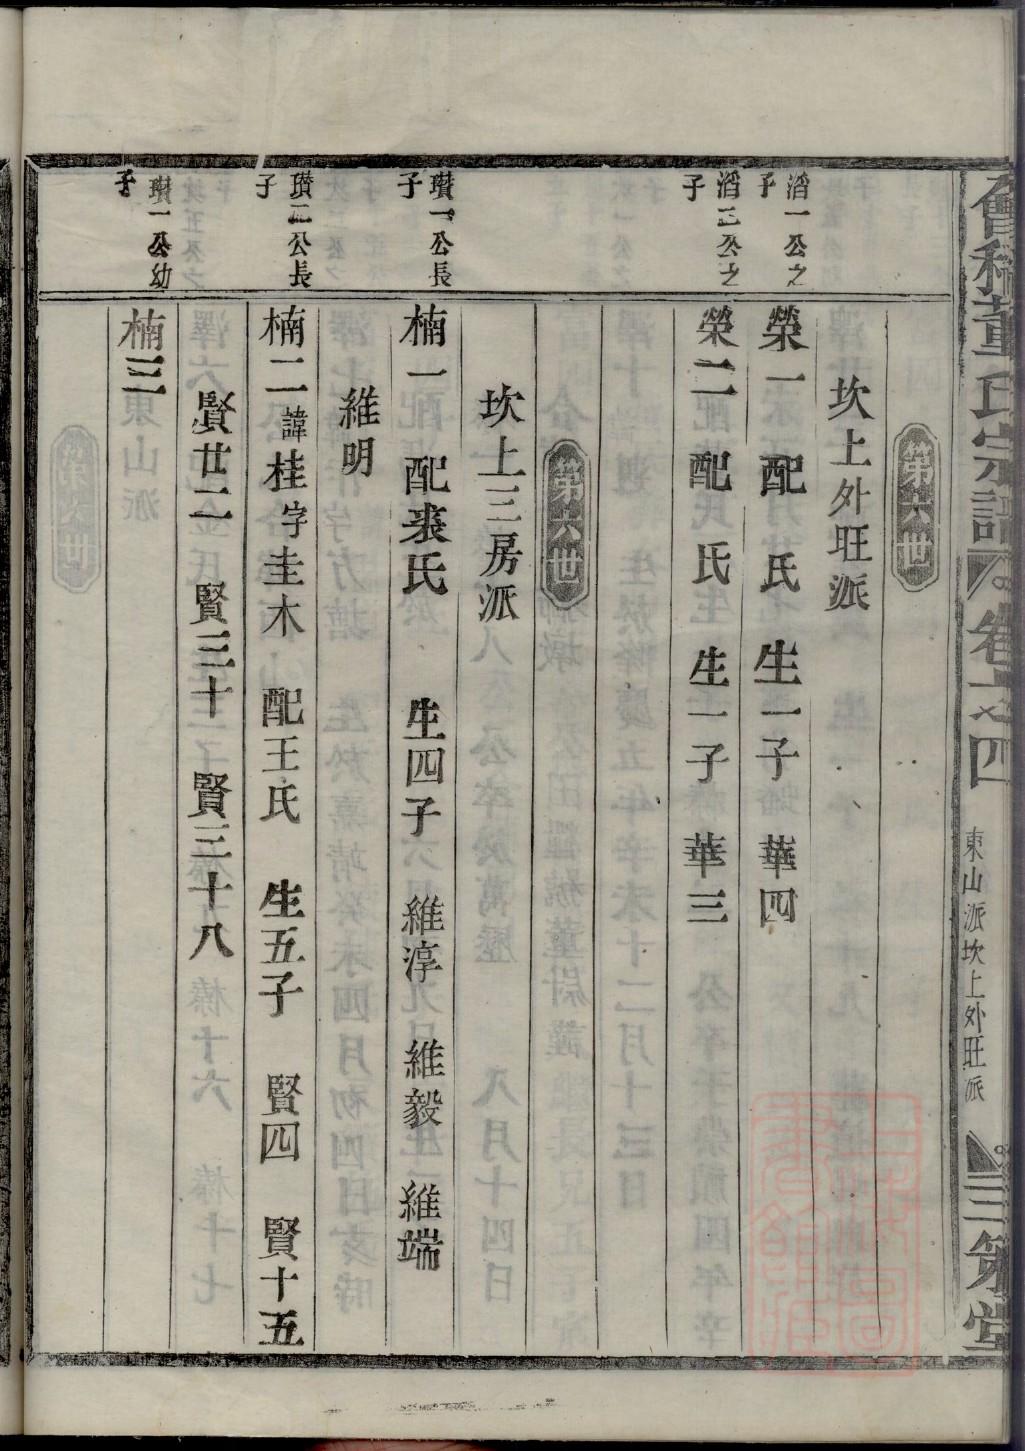 會稽董氏宗譜 卷之四 東山派坎上外旺派 三策堂
第六世
坎上外旺派
滔一公之子
榮一 配 氏 生一子 華四
滔三公之子
榮二 配 氏 生一子 華三
第六世
坎上三房派
瓚一公長子
楠一 配裘氏 生四子 維淳 維毅 維端
維明
瓚二公長子
楠二 諱桂字圭木 配王氏 生五子 賢四 賢十五
賢廿二 賢三十 賢三十八
瓚一公幼子
楠三